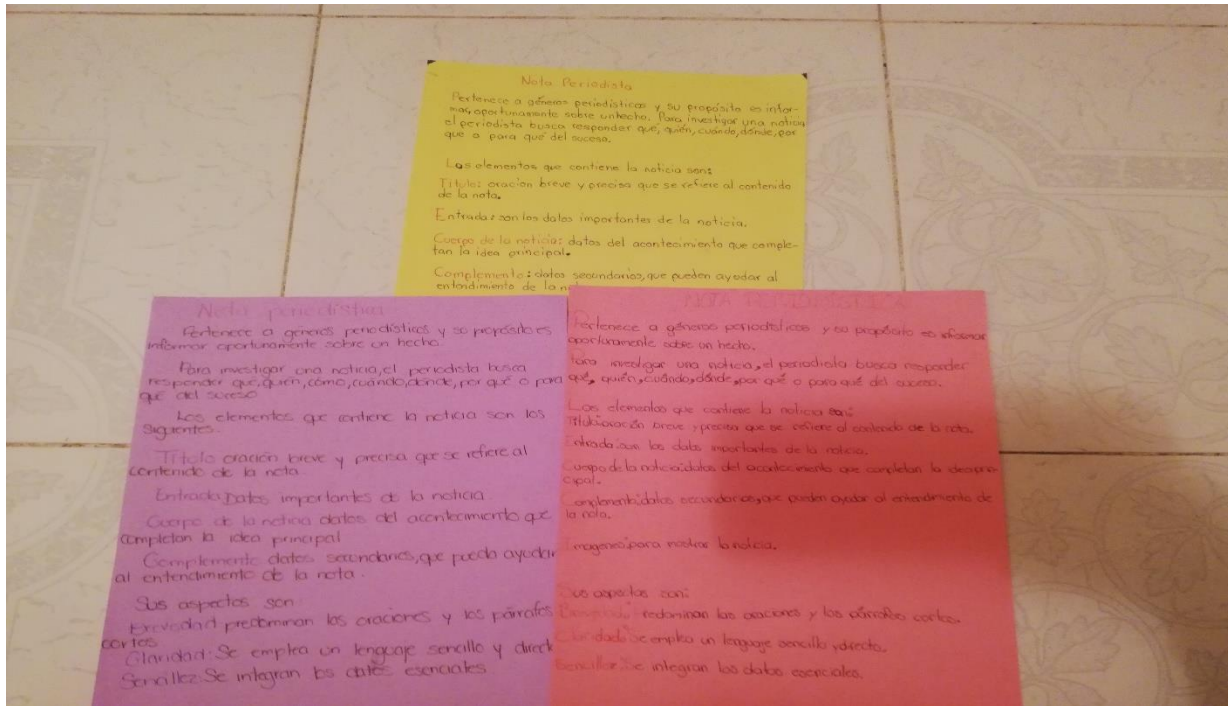 Nota Periodista
Pertenece a géneros periodísticos y su propósito es infor-
mar, oportunamente sobre un hecho. Para investigar una noticia
el periodista busca responder que, quién, cuándo, dónde, por
que o para qué del suceso.
Los elementos que contiene la noticia son:
Título: oración breve y precisa que se refiere al contenido
de la nota.
Entrada: son los datos importantes de la noticia.
Cuerpo de la noticia: datos del acontecimiento que comple-
tan la idea principal.
Complemento: datos secundarios, que pueden ayudar al
entendimiento de la
Nota periodística
Pertenece a géneros periodísticos y su propósito es
informar oportunamente sobre un hecho.
Para investigar una noticia, el periodista busca
responder qué, quién, cómo, cuándo, dónde, por qué o para
qué del suceso
Los elementos que contiene la noticia son los
siguientes.
Título oración breve y precisa que se refiere al
contenido de la nota.
Entrada Datos importantes de la noticia.
Cuerpo de la noticia datos del acontecimiento que
completan la idea principal
Complemento datos secundarios, que pueda ayudar
al entendimiento de la nota.
Sus aspectos son
Brevedad predominan las oraciones y los párrafos
cortos
Claridad: Se emplea un lenguaje sencillo y direct
Sencillez: Se integran los datos esenciales
NOTA PERIODISTICA
Pertenece a géneros periodísticos y su propósito es informar
oportunamente sobre un hecho.
Para investigar una noticia, el periodista busca responder
qué, quién, cuándo, dónde, por qué o para qué del suceso.
Los elementos que contiene la noticia son:
Título: oración breve y precisa que se refiere al contenido de la nota.
Entrada: son los datos importantes de la noticia.
Cuerpo de la noticia: datos del acontecimiento que completan la idea prin-
cipal.
Complemento: datos secundarios, que pueden ayudar al entendimiento de
la nota.
Imagenes: para mostrar la noticia.
Sus aspectos son:
predominan las oraciones y los párrafos cortos.
Claridad: Se emplea un lenguaje sencillo y directo.
Sencillez: Se integran los datos esenciales.